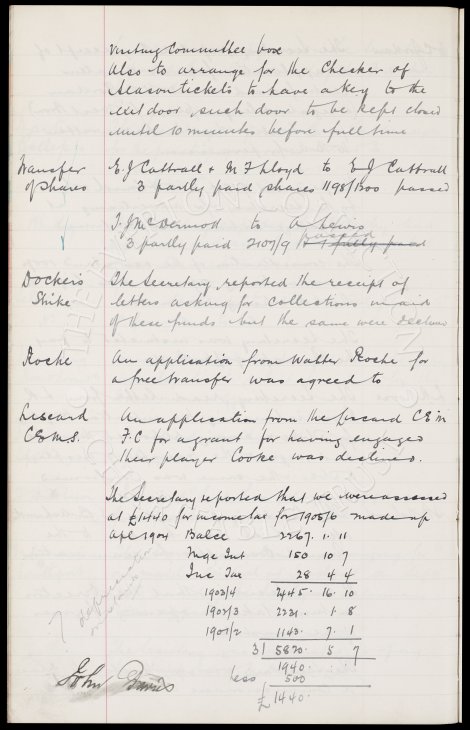 Visiting Committee box
Also to arrange for the Checker of
Season tickets to have a key to the
exit door, such door to be kept closed
until 10 minutes before full time
Transfer of Shares
E J Cattrall & M F Lloyd to E J Cattrall
3 partly paid shares 1198/1200 passed
T. J McDermod to A Lewis
3 partly paid 2107/9 passed
Dockers Strike
The Secretary reported the receipt of
letters asking for collections in aid
of these funds but the same were declined
Roche
An application from Walter Roche for
a free transfer was agreed to
Liscard C.E.M.S.
An application from the Liscard C E M
F.C for a grant for having engaged
their player Cooke was declined.
The Secretary reported that we were assessed
at £1440 for income tax for 1905/6 made up
Apl 1904 Balce 2267. 1. 11
Mge Int 150 10 7
Inc Tax 28 4 4
1903/4 2445. 16. 10
1902/3 2231. 1. 8
1901/2 1143. 7. 1
3) 5820. 5 7
1940. . .
less 500
£1440.
? depreciation
John Davis